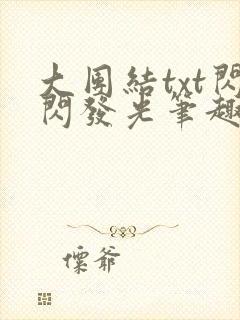 大团結txt閃
閃發光筆趣
懍爺